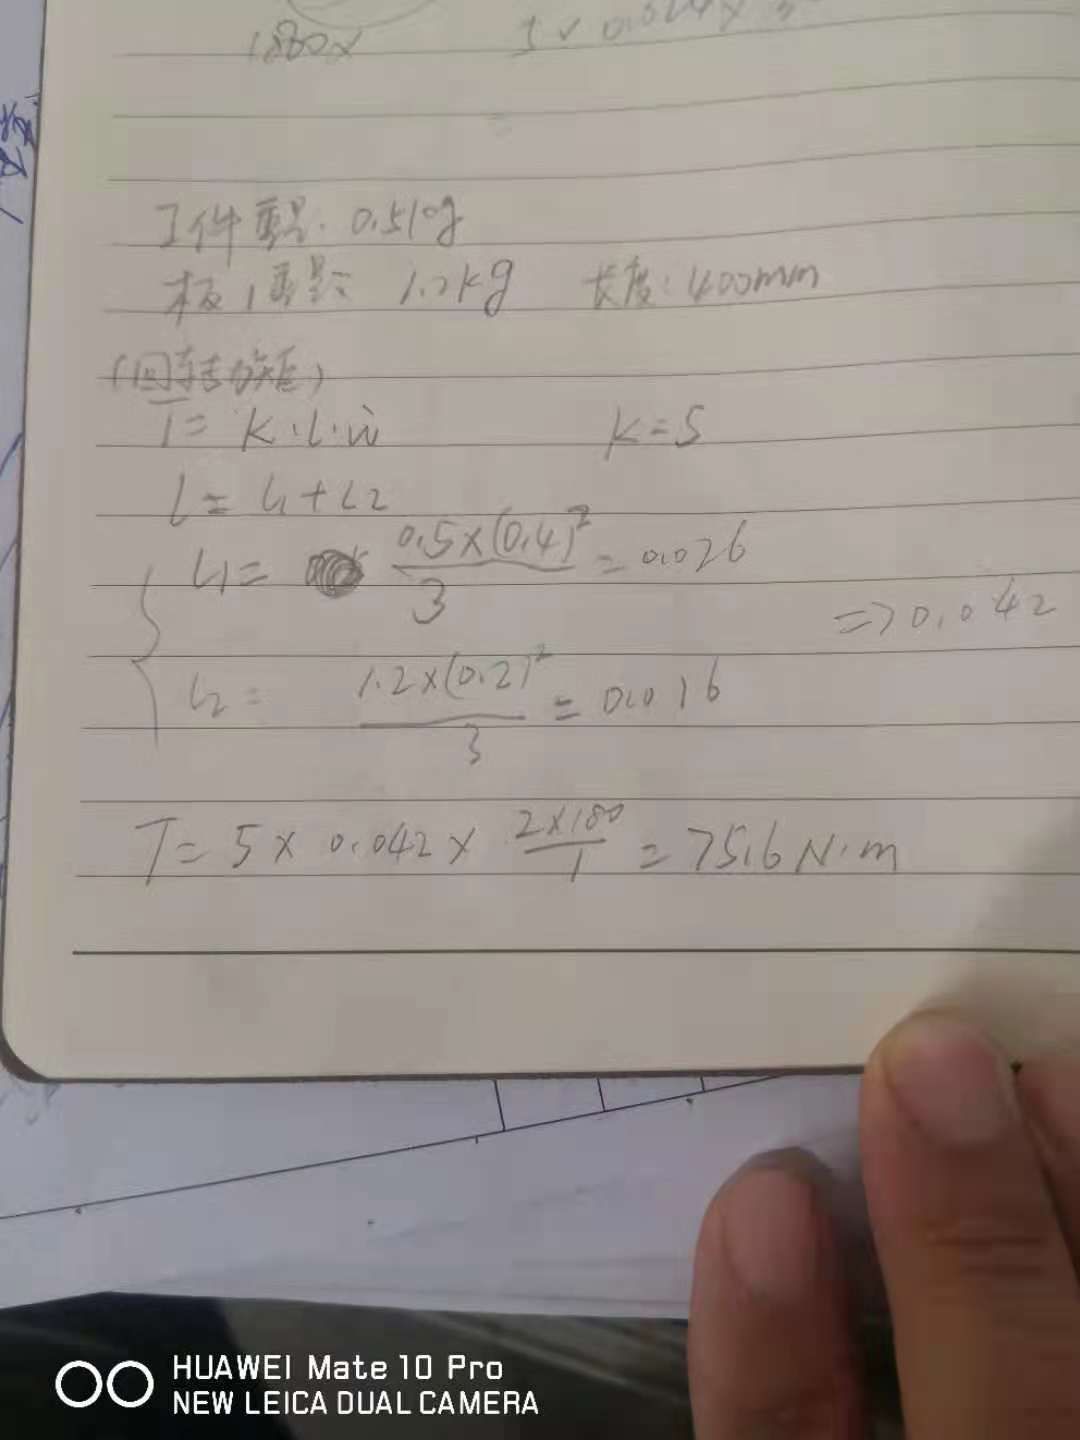 1880×
工件重量: 0.5kg
板重量: 1.2kg 长度: 400mm
(回转力矩)
T= K·L·ẇ K=5
L= L1+L2
L1= 0.5×(0.4)²/3 =0.026
=> 0.042
L2= 1.2×(0.2)²/3 = 0.016
T= 5× 0.042× 2×180/1 = 75.6 N·m
HUAWEI Mate 10 Pro
NEW LEICA DUAL CAMERA